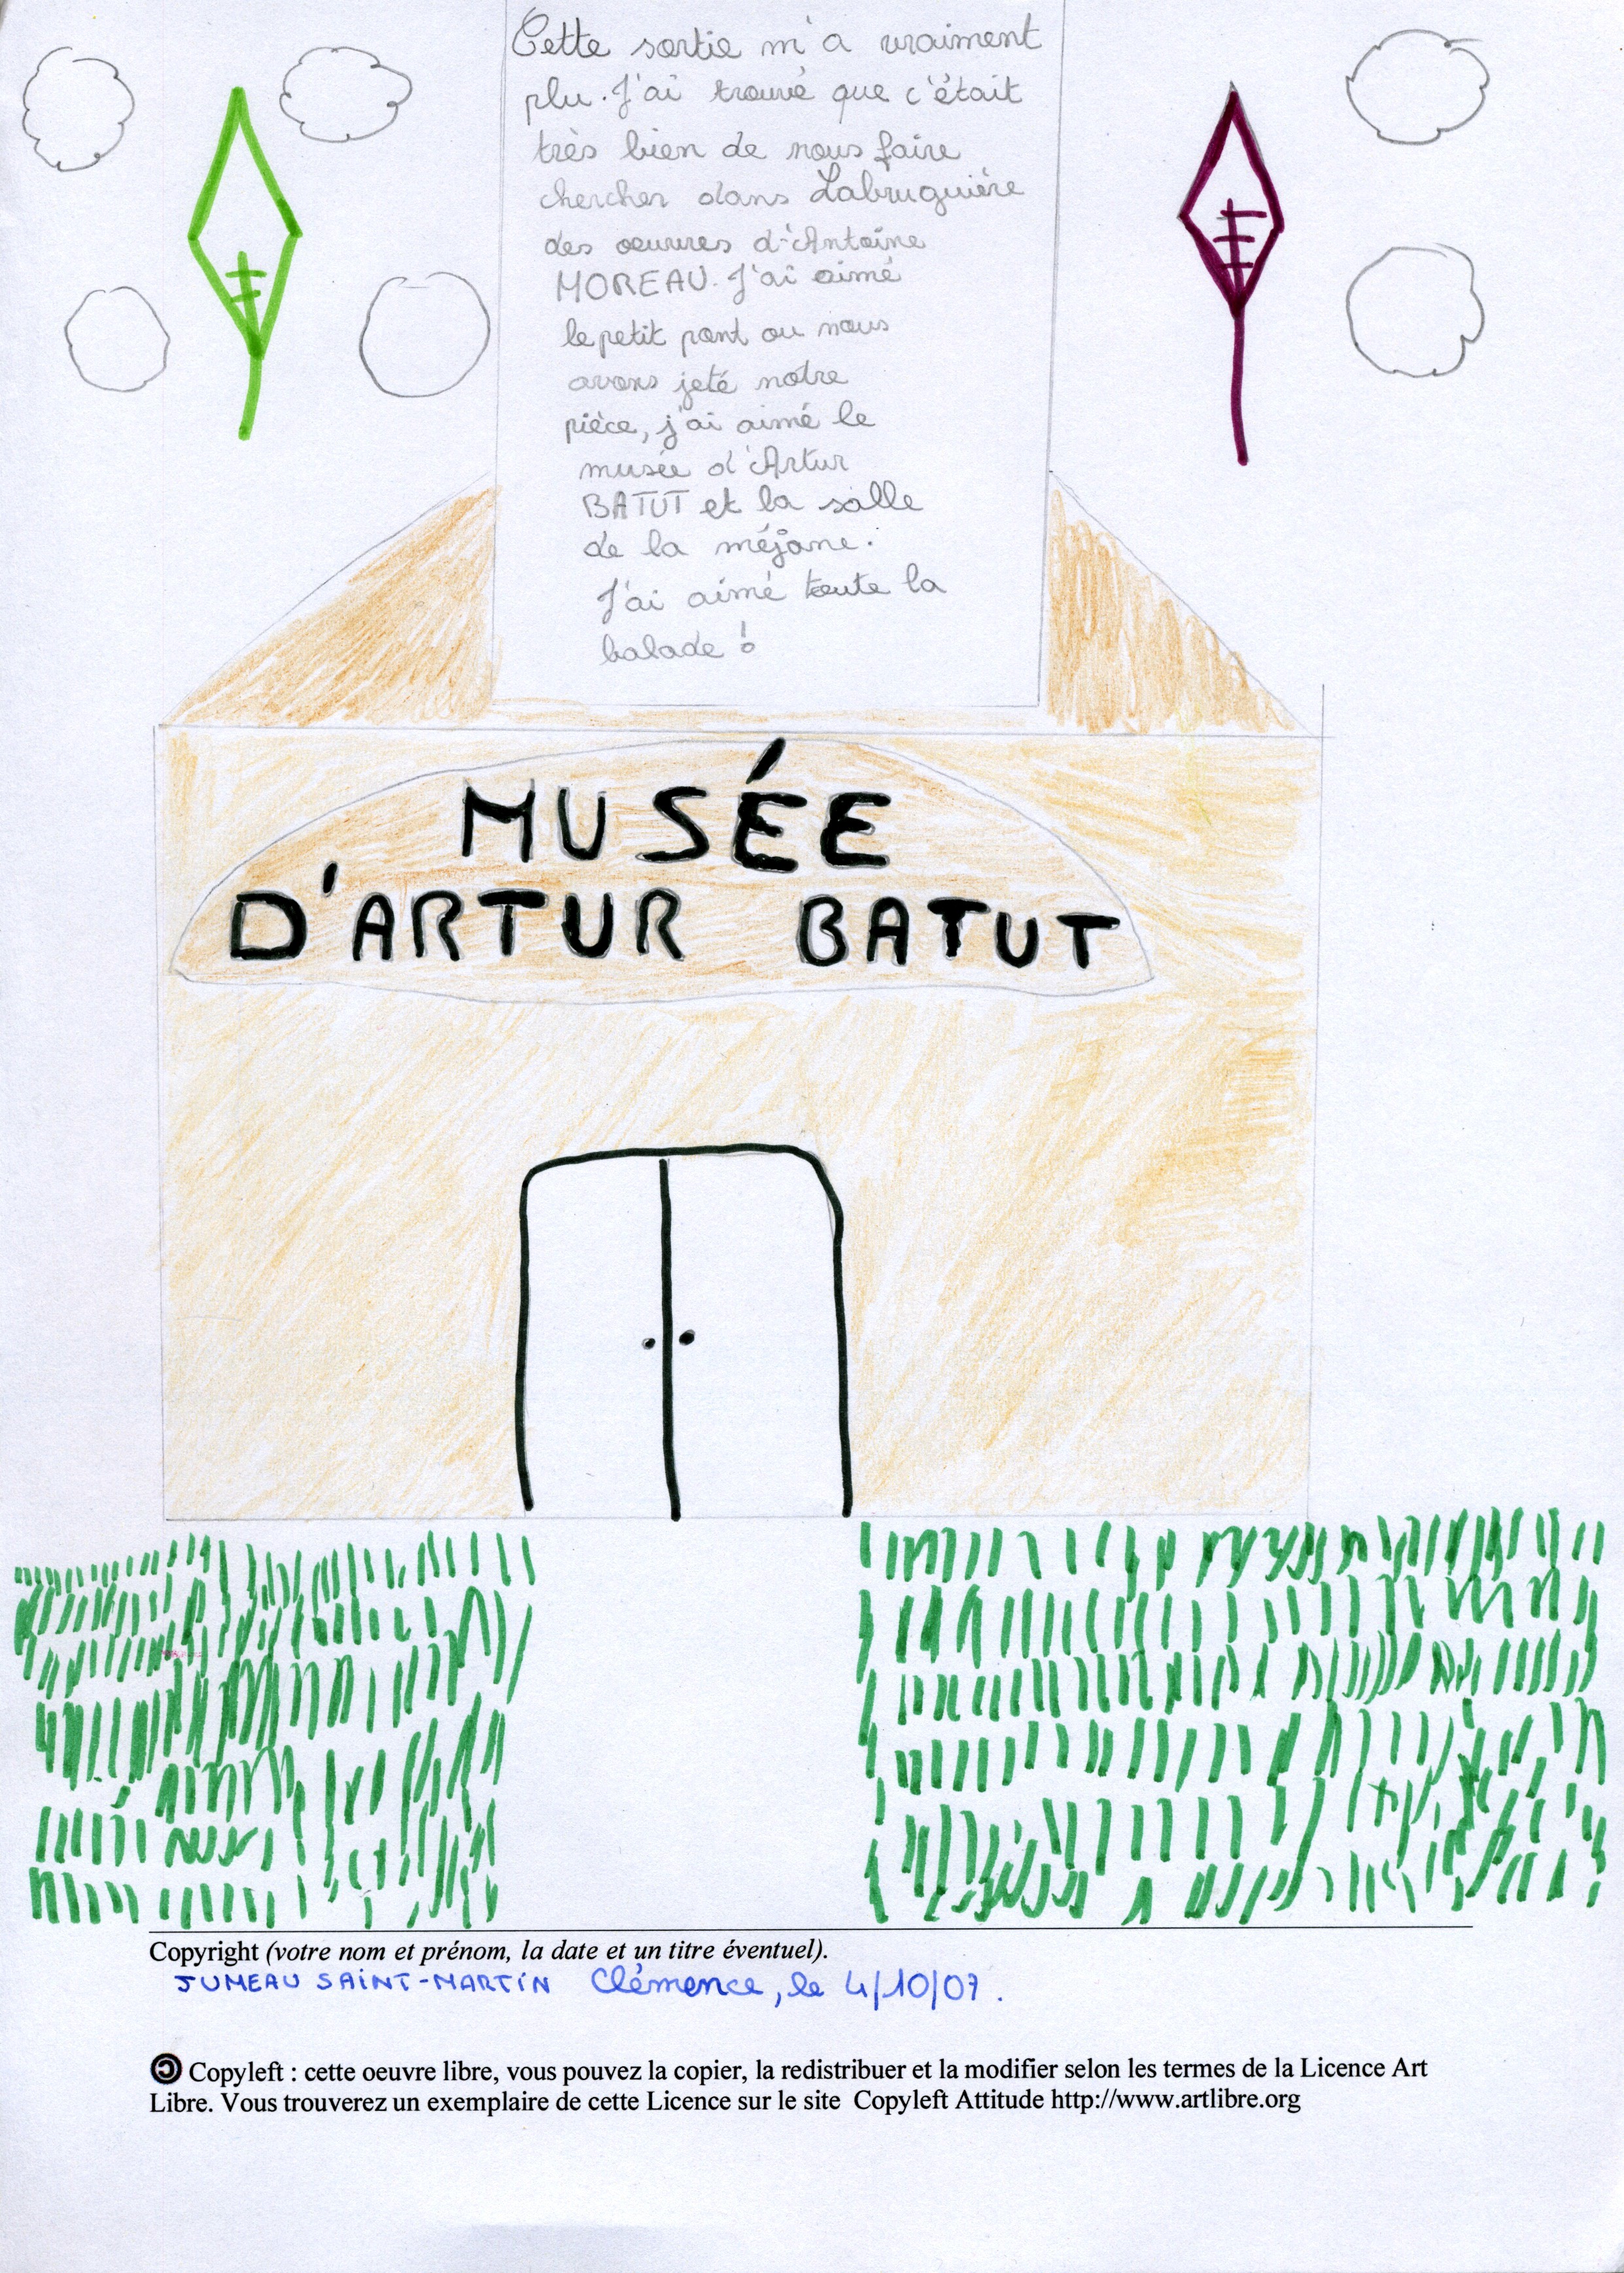 Cette sortie m'a vraiment
plu. J'ai trouvé que c'était
très bien de nous faire
chercher dans Labruguière
des oeuvres d'Antoine
MOREAU. J'ai aimé
le petit pont ou nous
avons jeté notre
pièce, j'ai aimé le
musée d'Artur
BATUT et la salle
de la méjane.
J'ai aimé toute la
balade !
MUSÉE
D'ARTUR BATUT
Copyright (votre nom et prénom, la date et un titre éventuel).
JUMEAU SAINT-MARTIN Clémence, le 4/10/07.
Copyleft : cette oeuvre libre, vous pouvez la copier, la redistribuer et la modifier selon les termes de la Licence Art
Libre. Vous trouverez un exemplaire de cette Licence sur le site Copyleft Attitude http://www.artlibre.org